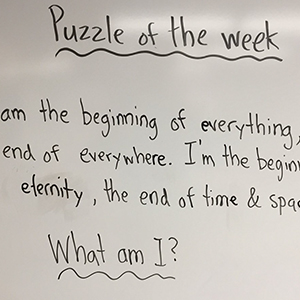 Puzzle of the week
am the beginning of everything,
end of everywhere. I'm the
eternity, the end of time &
What am I?